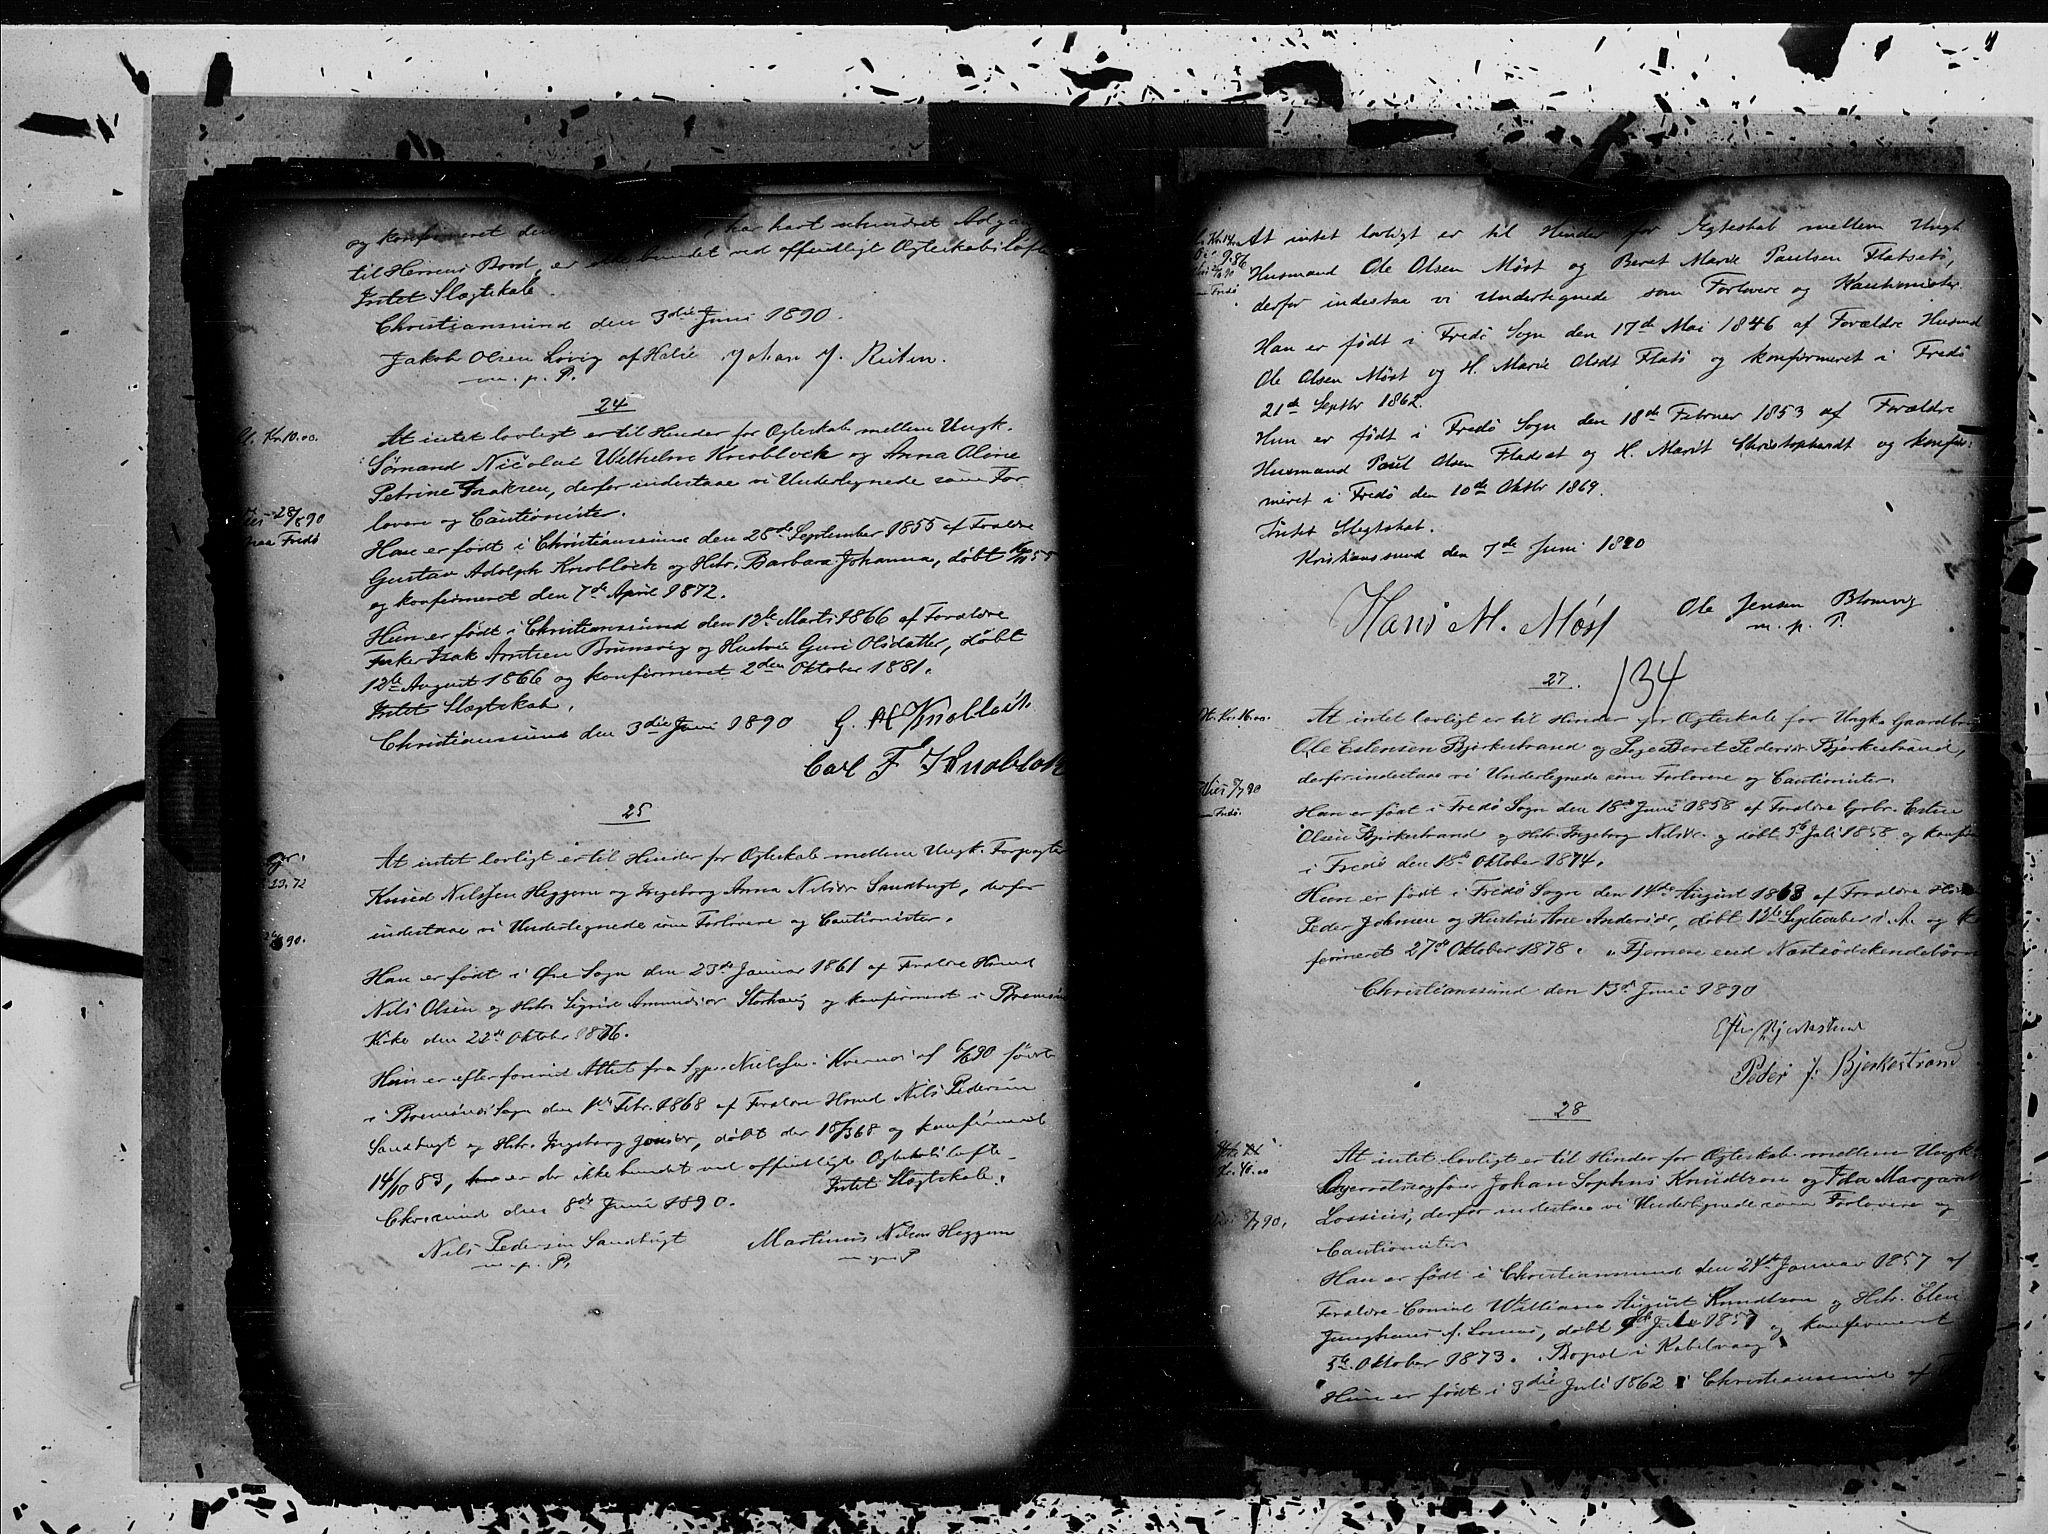 og konfirmeret den har havt uhindret Adgang
til Herrens Bord, er ikke bundet ved offentligt Ægteskabsløfte
Intet Slægtskab.
Christianssund den 3die Juni 1890.
Jakob Olsen af Johan J. Reiten.
m. p. P.
24
Kr. 10.00.
At intet lovligt er til Hinder for Ægteskab mellem Ungk.
Sømand Nicolai Wilhelm Knoblock og Anna Oline
Petrine Isaksen, derfor indestaae vi Undertegnede som For
lovere og Cautionister.
Viet 28/8 90
Fredø
Han er født i Christianssund den 28de September 1855 af Foraldre
Gustav Adolph Knoblock og Hstr. Barbara Johanna, døbt
og konfirmeret den 7de April 1872.
Hun er født i Christianssund den 12te Marts 1866 af Foraldre
Isak Arntsen Brunsvig og Hustru Guri Olsdatter, døbt
12te August 1866 og konfirmeret 2den Oktober 1881.
Intet Slægtskab.
Christianssund den 3die Juni 1890 G. A. Knoblock
Carl F. Knoblock
25
23.72
90.
At intet lovligt er til Hinder for Ægteskab mellem Ungk. Forpagter
Knud Nilssen Heggem og Ingeborg Anna Nilsdr Sandbugt, derfor
indestaae vi Undertegnede som Forlovere og Cautionister.
Han er født i Øre Sogn den 23de Januar 1861 af Foraldre Hmd
Nils Olsen og Hstr. Sigrid Amundsdr Storhaug og konfirmeret i Bremsnæs
Kirke den 22de Oktober 1876.
Hun er efter forevist Attest fra Sgpr. Nielsen i Kvernæs af 6/6 90 født
i Bremsnæs Sogn den 1ste Febr. 1868 af Foraldre Hmd Nils Pedersen
Sandbugt og Hstr. Ingeborg Jonsdr, døbt der 18/3 68 og konfirmeret
14/10 83, er der ikke bundet ved offentligt Ægteskabsløfte.
Intet Slægtskab.
Chrssund den 8de Juni 1890.
Nils Pedersen Sandbugt Martinus Nilsen Heggem
m. p. P. m. p. P
At intet lovligt er til Hinder for Ægteskab mellem Ungk
Husmand Ole Olsen Møst og Beret Marie Paulsen Flatsetø,
derfor indestaa vi Undertegnede som Forlovere og Kautionister.
986
Fredø
Han er født i Fredø Sogn den 17de Mai 1846 af Forældre Husmd
Ole Olsen Møst og H. Marie Olsdt Flatsø og konfirmeret i Fredø
21de Septbr 1862.
Hun er født i Fredø Sogn den 18de Februar 1853 af Forældre
Husmand Paul Olsen Fladset og H. Marit Christophersdt og konfir:
meret i Fredø den 10de Oktbr 1869.
Intet Slegtskab.
Kristianssund den 7de Juni 1890
Hans M. Møst Ole Jensen Blomvig
m. p. P.
27. 134
Kr. 16.00.
At intet lovligt er til Hinder for Ægteskab for Ungk. Gaardbr
Ole Estensen Bjerkestrand og Pige Beret Pedersdr Bjerkestrand,
derfor indestaae vi Undertegnede som Forlovere og Cautionister.
Viet 90
Fredø.
Han er født i Fredø Sogn den 18de Juni 1858 af Foraldre Gbr. Esten
Olsen Bjerkestrand og Hstr. Ingeborg Nilsdr. og døbt 5te Juli 1858 og konfir
i Fredø den 18de Oktober 1874.
Hun er født i Fredø Sogn den 14de August 1863 af Foraldre
Peder Johnsen og Hustru Ane Andersdr, døbt 13de September s. A. og kon
firmeret 27de Oktober 1878. Fjernere end Næstsødskendebørn
Christianssund den 13de Juni 1890
Bjerkestrand
Peder J. Bjerkestrand
28
Kr. 40.00
At intet lovligt er til Hinder for Ægteskab mellem Ungk.
Overretssagfører Johan Sophus Knudtzon og Ida Margaret
Lossius, derfor indestaae vi Undertegnede som Forlovere og
Cautionister
90.
Han er født i Christianssund den 24de Januar 1857 af
Foraldre Consul William August Knudtzon og Hstr. Elen
Junghans f. Lossius, døbt Juli 1857 og konfirmeret
5te Oktober 1873. Bopæl i Kabelvaag
Hun er født i 3die Juli 1862 i Christianssund af